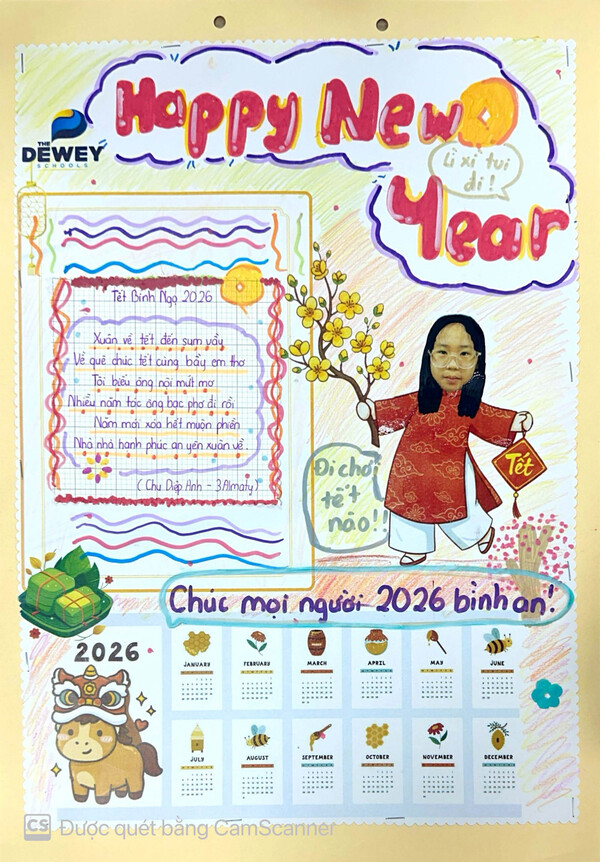 Happy New
Year
Lì xì tui
đi!
THE
DEWEY
SCHOOLS
Tết Bính Ngọ 2026
Xuân về tết đến sum vầy
Về quê chúc tết cùng bầy em thơ
Tôi biếu ông nội mứt mơ
Nhiều năm tóc ông bạc phơ đi rồi
Năm mới xóa hết muộn phiền
Nhà nhà hạnh phúc an yên xuân về.
(Chu Diệp Anh - 3Almaty)
Đi chơi
tết
nào!!
Tết
Chúc mọi người 2026 bình an!
2026
JANUARY
FEBRUARY
MARCH
APRIL
MAY
JUNE
JULY
AUGUST
SEPTEMBER
OCTOBER
NOVEMBER
DECEMBER
CS Được quét bằng CamScanner